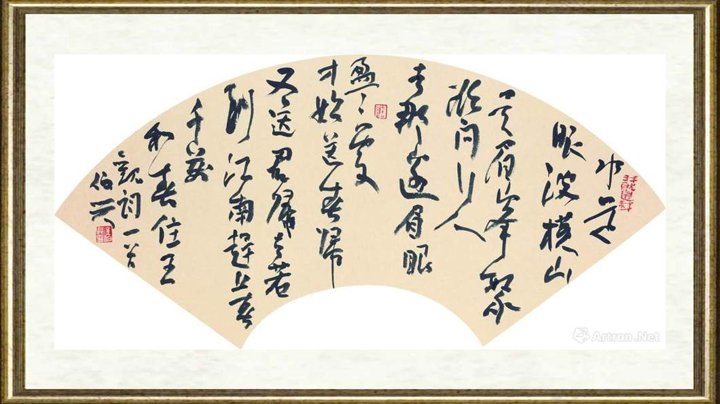 水是
眼波橫山
是眉峰聚
欲问行人
去那邊眉眼
盈盈處
才始送春歸
又送君歸去若
到江南趕上春
千萬
和春住王
觀詞一首
伯
Artron.Net